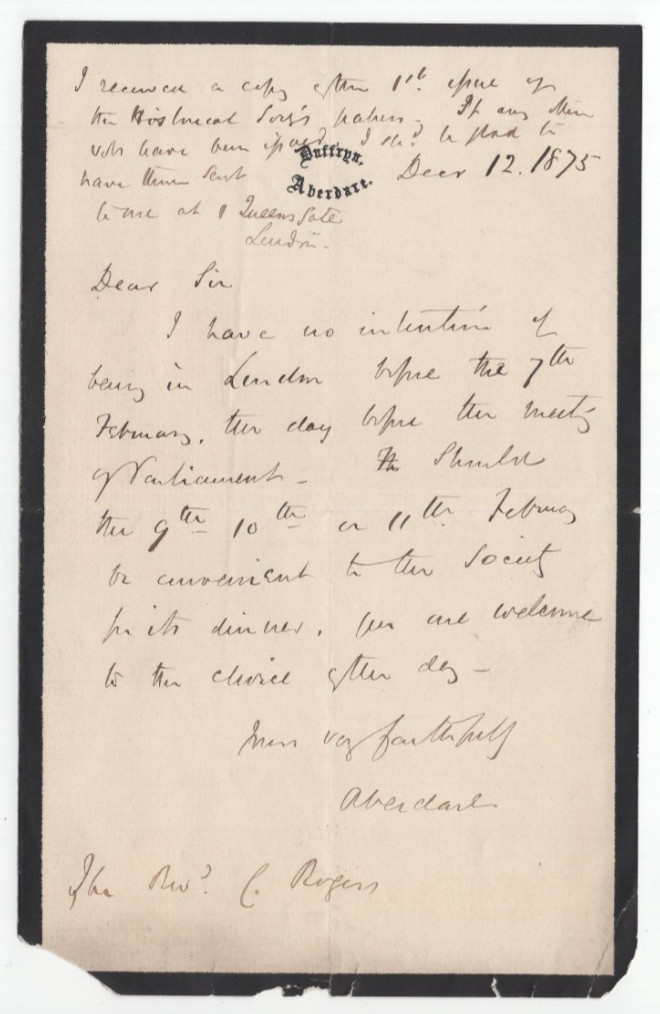 I received a copy of the 1st issue of
the Historical Socy's papers. If any other
vols have been issued, I shd be glad to
have them sent
to me at 1 Queens Gate
London.
Duffryn,
Aberdare.
Decr 12. 1875
Dear Sir
I have no intention of
being in London before the 7th
February, the day before the meeting
of Parliament - Should
the 9th 10th or 11th February
be convenient to the Society
for its dinner, you are welcome
to the choice of the day -
Yours very faithfully
Aberdare
The Revd. C. Rogers